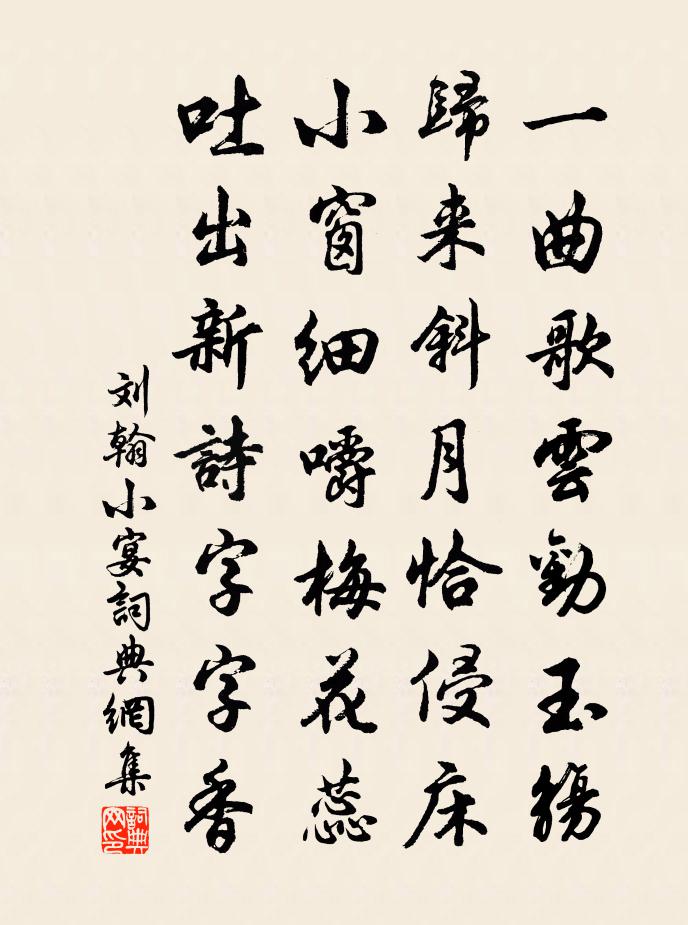 一曲歌雲勸玉觴
歸来斜月恰侵床
小窗細嚼梅花蕊
吐出新詩字字香
刘翰小宴詞典網集
詞典网印